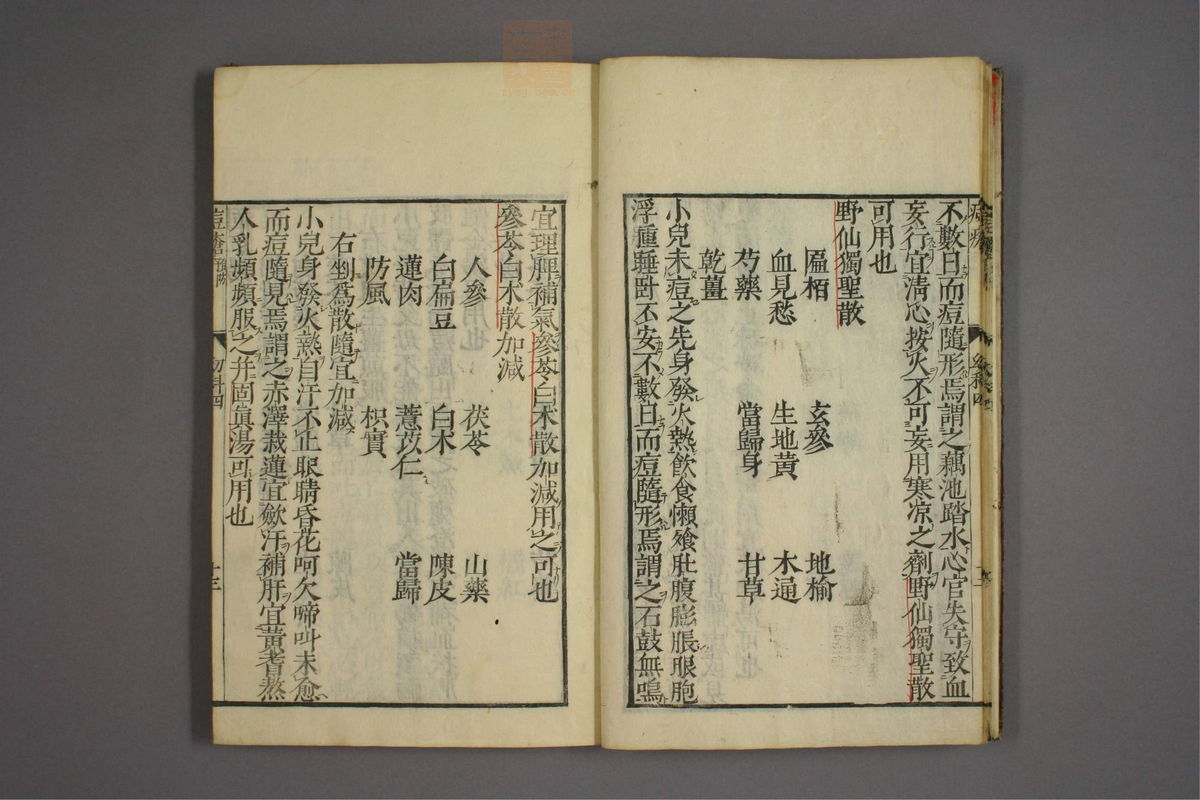 不數日而痘隨形焉謂之藕池踏水心官失守致血
妄行宜清心按火不可妄用寒凉之劑野仙獨聖散
可用也
野仙獨聖散
區栢 玄參 地榆
血見愁 生地黄 木通
芍藥 當歸身 甘草
乾薑
小兒未痘之先身發火熱飲食懶飱肚腹膨脹眼胞
浮腫睡卧不安不數日而痘隨形焉謂之石鼓無鳴
宜理脾補氣參苓白术散加減用之可也
參苓白术散加減
人參 茯苓 山藥
白扁豆 白术 陳皮
蓮肉 薏苡仁 當歸
防風 枳實
右剉為散隨宜加減
小兒身發火熱自汗不止眼睛昏花呵欠啼叫未愈
而痘隨見焉謂之赤澤栽蓮宜歛汗補肝宜黄耆熬
人乳頻頻服之并固眞湯可用也
痘瘡 預防 幼科四 十三